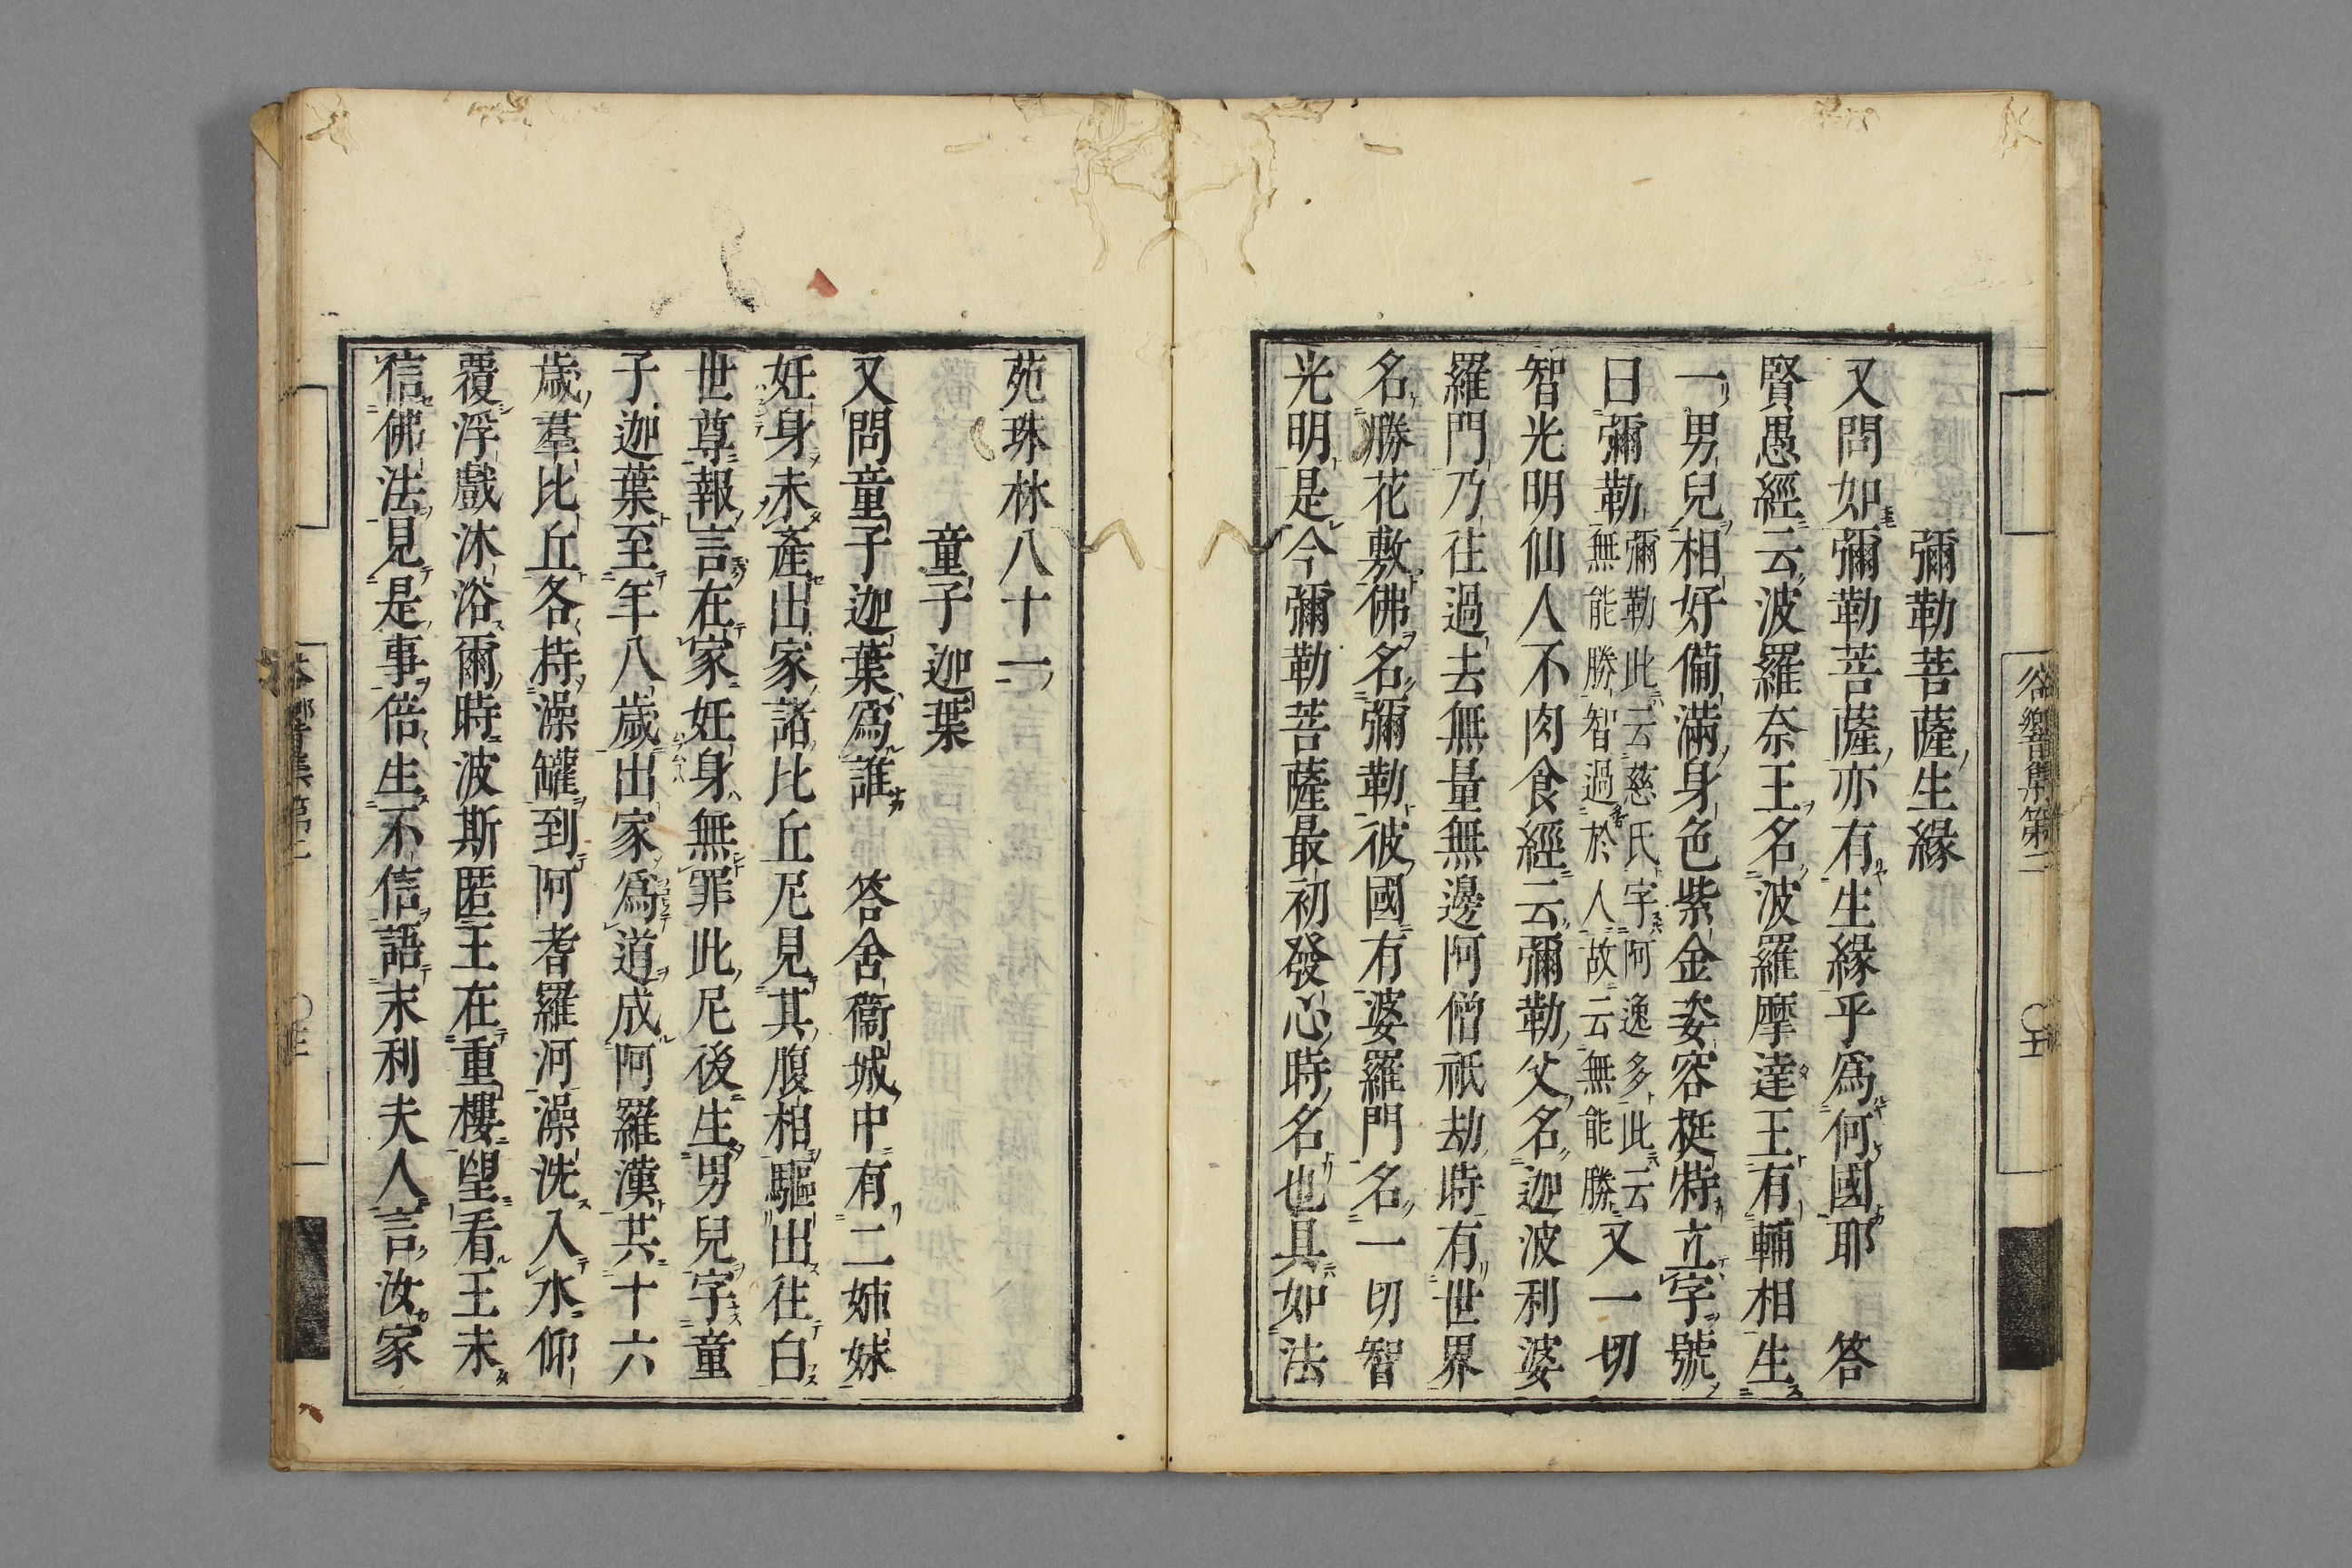 彌勒菩薩生緣
又問如彌勒菩薩亦有生緣乎爲何國耶　答
賢愚經云波羅奈王名波羅摩達王有輔相生
一男兒相好備滿身色紫金姿容挺特立字號
曰彌勒
彌勒此云慈氏字阿逸多此云
無能勝智過於人故云無能勝
又一切
智光明仙人不肉食經云彌勒父名迦波利婆
羅門乃往過去無量無邊阿僧祇劫時有世界
名勝花敷佛名彌勒彼國有婆羅門名一切智
光明是今彌勒菩薩最初發心時名也具如法
谷響集第二
苑珠林八十一
童子迦葉
又問童子迦葉爲誰　答舍衞城中有二姉妹
妊身未產出家諸比丘尼見其腹相驅出往白
世尊報言在家妊身無罪此尼後生男兒字童
子迦葉至年八歲出家爲道成阿羅漢共十六
歲羣比丘各持澡罐到阿耆羅河澡洗入水仰
覆浮戲沐浴爾時波斯匿王在重樓望看王未
信佛法見是事倍生不信語末利夫人言汝家